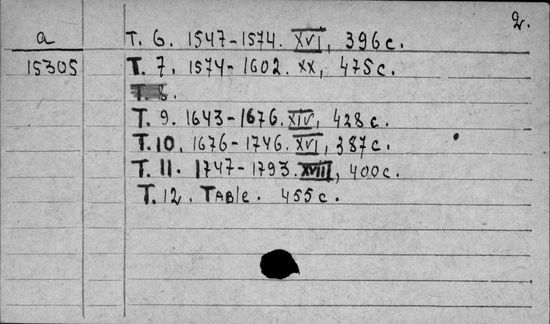 2.
a T. 6. 1547-1574. XVI, 396 c.
15305 T. 7. 1574-1602. XX, 475 c.
T. 8.
T. 9. 1643-1676. XIV, 428 c.
T. 10. 1676-1746. XVI, 387 c.
T. 11. 1747-1793. XVIII, 400 c.
T. 12. TABle. 455 c.